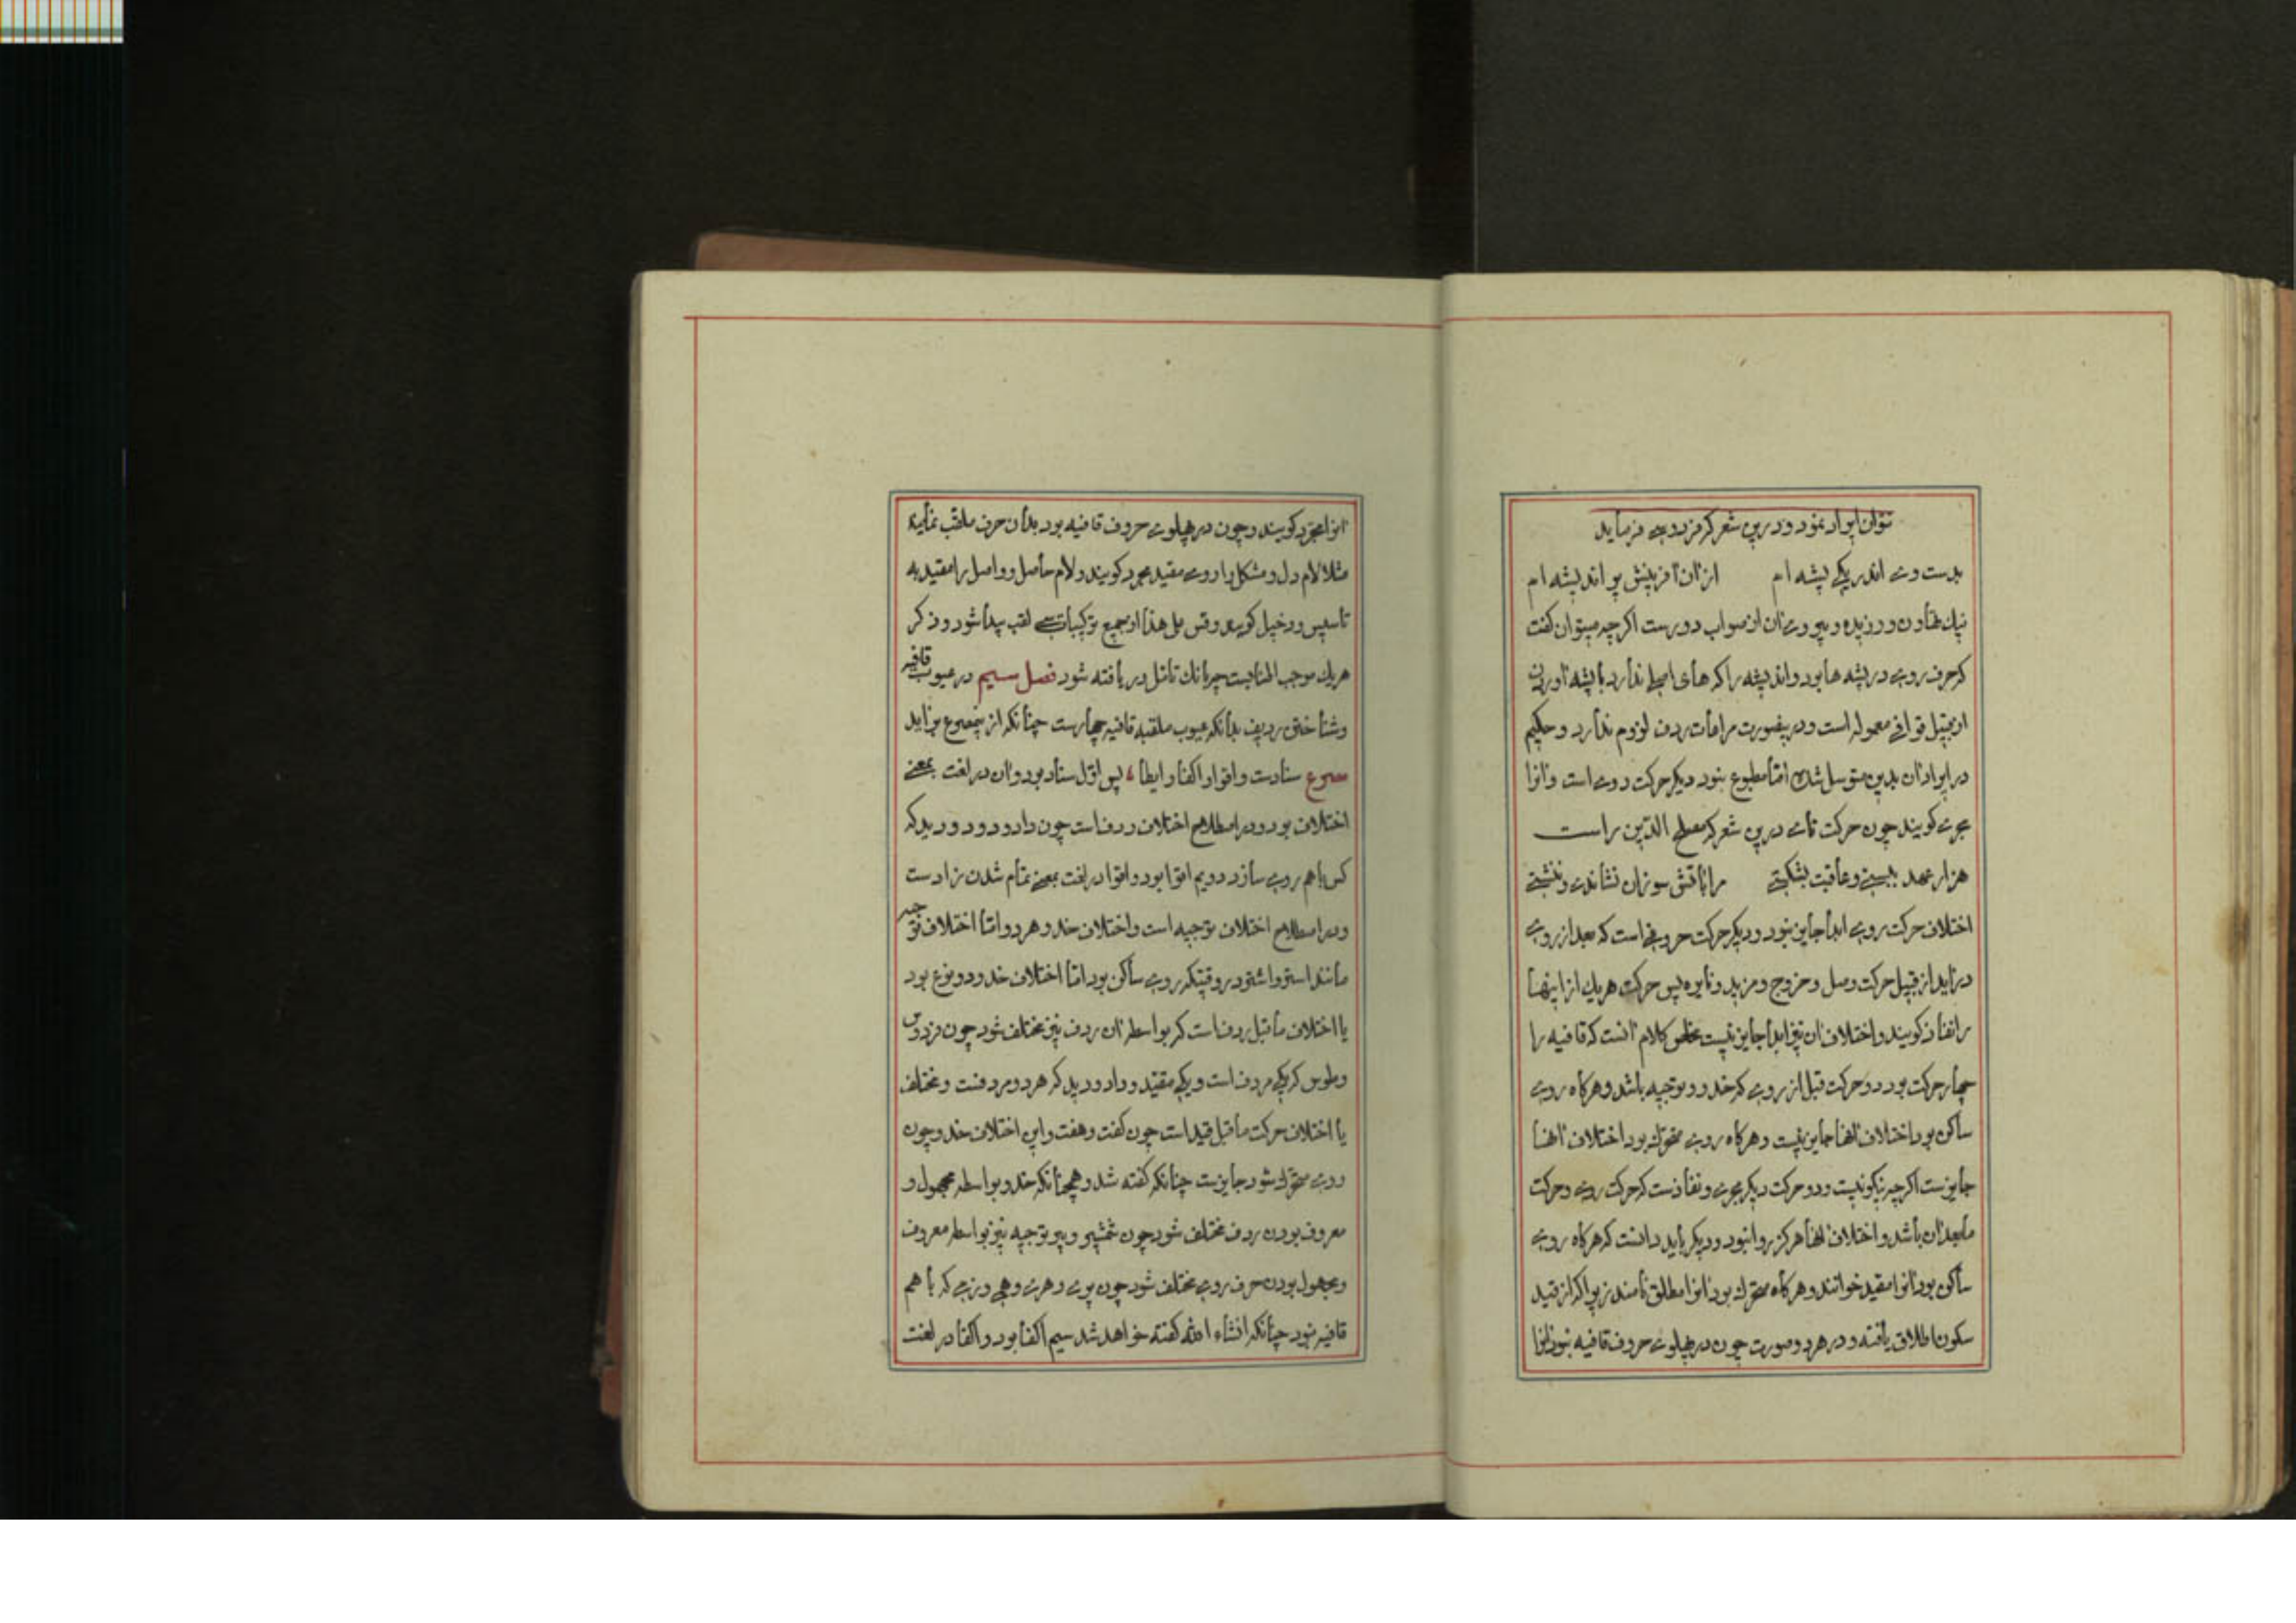 نتوان ایراد نمود و درین شعر که فردوسی فرماید
بدست وی اندر یکی پشه ام از آن آفرینش پر اندیشه ام
نیک تهاون ورزیده و پیروی آن از صواب دورست اگرچه میتوان گفت
که حرف روی در پشه ها بود و اندیشه را که های اصلی ندارد با پشه آوردن
از قبیل قوافی معموله است و درینصورت مراعات ردف لزوم ندارد و حکیم
در ایراد آن بدین متوسل شده اما مطبوع نبود دیگر حرکت روی است و آنرا
مجری گویند چون حرکت تای درین شعر که مصلح الدین راست
هزار عهد ببستی و عاقبت بشکستی مرا بآتش سوزان نشاندی و ننشستی
اختلاف حرکت روی ابدا جایز نبود و دیگر حرکت حروفی است که بعد از روی
در آید از قبیل حرکت وصل و خروج و مزید و نایره پس حرکت هریک از اینها
را نفاذ گویند و اختلاف آن نیز ابدا جایز نیست مخلص کلام آنست که قافیه را
چهار حرکت بود دو حرکت قبل از روی که حذو و توجیه باشد و هرگاه روی
ساکن بود اختلاف آنها جایز نیست و هرگاه روی متحرک بود اختلاف آنها
جایزست اگرچه نیکو نیست و دو حرکت دیگر مجری و نفاذست که حرکت روی و حرکت
مابعد آن باشد و اختلاف آنها هرگز روا نبود و دیگر باید دانست که هرگاه روی
ساکن بود آنرا مقید خوانند و هرگاه متحرک بود آنرا مطلق نامند زیرا که از قید
سکون اطلاق یافته و در هر دو صورت چون در پهلوی حروف قافیه نبود آنرا
آنرا مجرد گویند و چون در پهلوی حروف قافیه بود بدان حرف ملقب نمایند
مثلا لام دل و مشکل را روی مقید مجرد گویند و لام حاصل و واصل را مقید به
تاسیس و دخیل گویند وقس علی هذا از جمیع ترکیبات سی لقب پیدا شود و ذکر
هریک موجب اطنابست چه باندک تامل دریافته شود فصل سیم در عیوب قافیه
و شناختن ردیف بدانکه عیوب ملقبه قافیه چهارست چنانکه ازین مصرع برآید
مصرع سنادست و اقوا و اکفا و ایطا پس اول سناد بود و آن در لغت بمعنی
اختلاف بود و در اصطلاح اختلاف ردف است چون داد و دود و دید که
کس باهم روی سازد دویم اقوا بود و اقوا در لغت بمعنی تمام شدن زادست
و در اصطلاح اختلاف توجیه است و اختلاف حذو هر دو اما اختلاف توجیه
مانند استر و اشتر در وقتیکه روی ساکن بود اما اختلاف حذو دو نوع بود
یا اختلاف ماقبل ردف است که بواسطه آن ردف نیز مختلف شود چون فردوس
و طوس که یکی مردف است و یکی مقید و داد و دید که هر دو مردفست و مختلف
یا اختلاف حرکت ماقبل قید است چون گفت و هفت و این اختلاف حذو چون
روی متحرک شود جایزست چنانکه گفته شد و همچنانکه حذو بواسطه مجهول و
معروف بودن ردف مختلف شود چون شمشیر و پیر توجیه نیز بواسطه معروف
و مجهول بودن حرف روی مختلف شود چون پری و هری و هی و زی که با هم
قافیه نبود چنانکه انشاء الله گفته خواهد شد سیم اکفا بود و اکفا در لغت